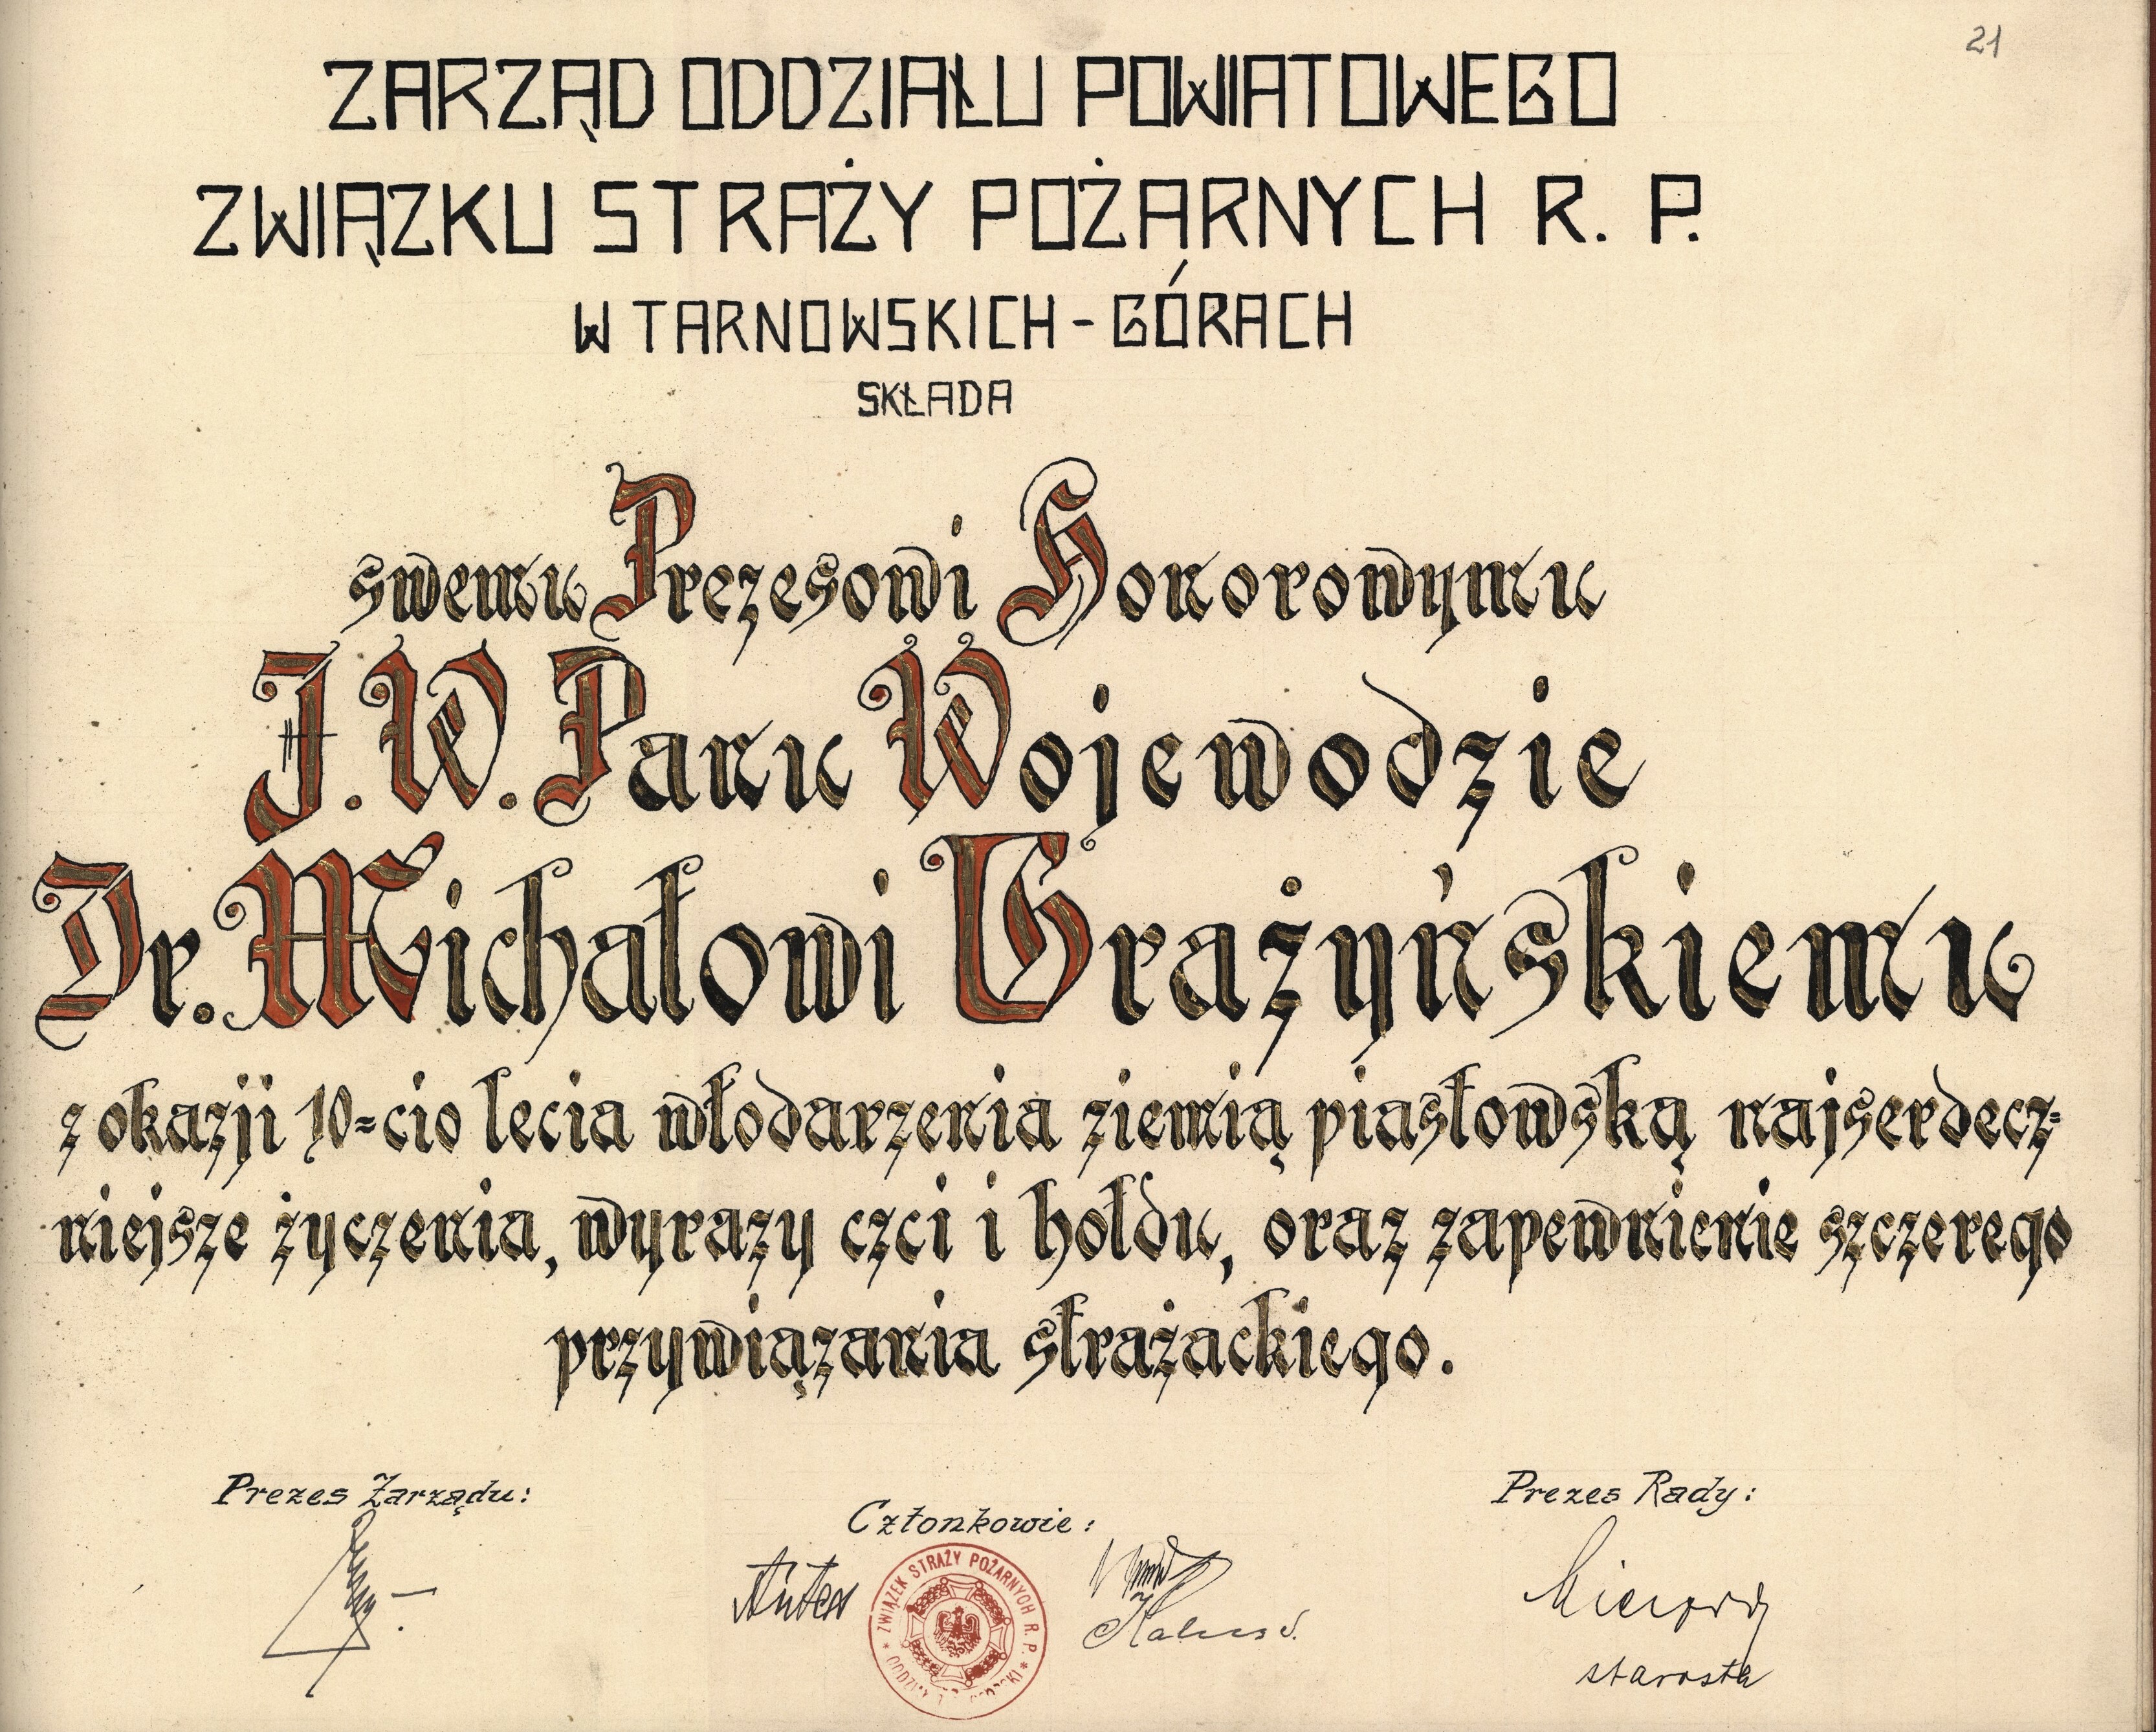 21
ZARZĄD ODDZIAŁU POWIATOWEGO
ZWIĄZKU STRAŻY POŻARNYCH R. P.
W TARNOWSKICH-GÓRACH
SKŁADA
swemu Prezesowi Honorowymu
J. W. Panu Wojewodzie
Dr. Michałowi Grażyńskiemu
z okazji 10=cio lecia włodarzenia ziemią piastowską najserdecz=
niejsze życzenia, wyrazy czci i hołdu, oraz zapewnienie szczerego
przywiązania strażackiego.
Prezes Zarządu:
Członkowie:
Prezes Rady:
ZWIĄZEK STRAŻY POŻARNYCH R. P.
starosta